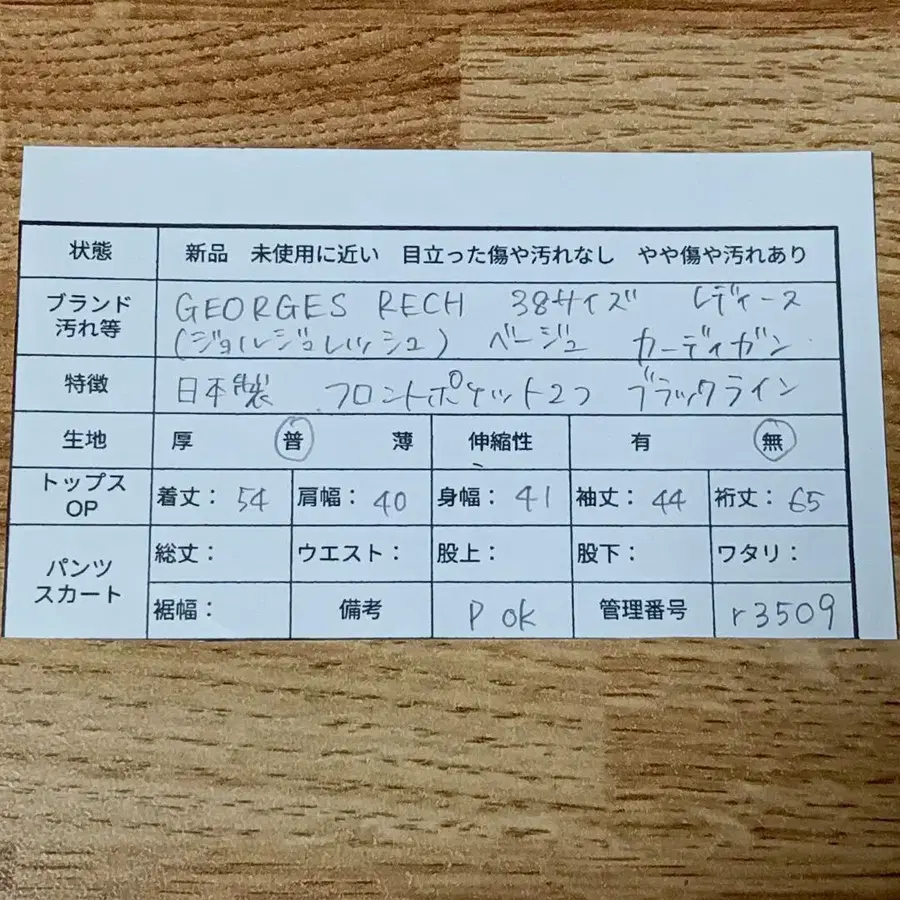 状態 新品 未使用に近い 目立った傷や汚れなし やや傷や汚れあり
ブランド 汚れ等 GEORGES RECH 38サイズ レディース
(ジョルジュレッシュ) ベージュ カーディガン
特徴 日本製 フロントポケット2つ ブラックライン
生地 厚 普 薄 伸縮性 有 無
トップス OP 着丈: 54 肩幅: 40 身幅: 41 袖丈: 44 裄丈: 65
パンツ スカート 総丈: ウエスト: 股上: 股下: ワタリ:
裾幅: 備考 P ok 管理番号 r3509